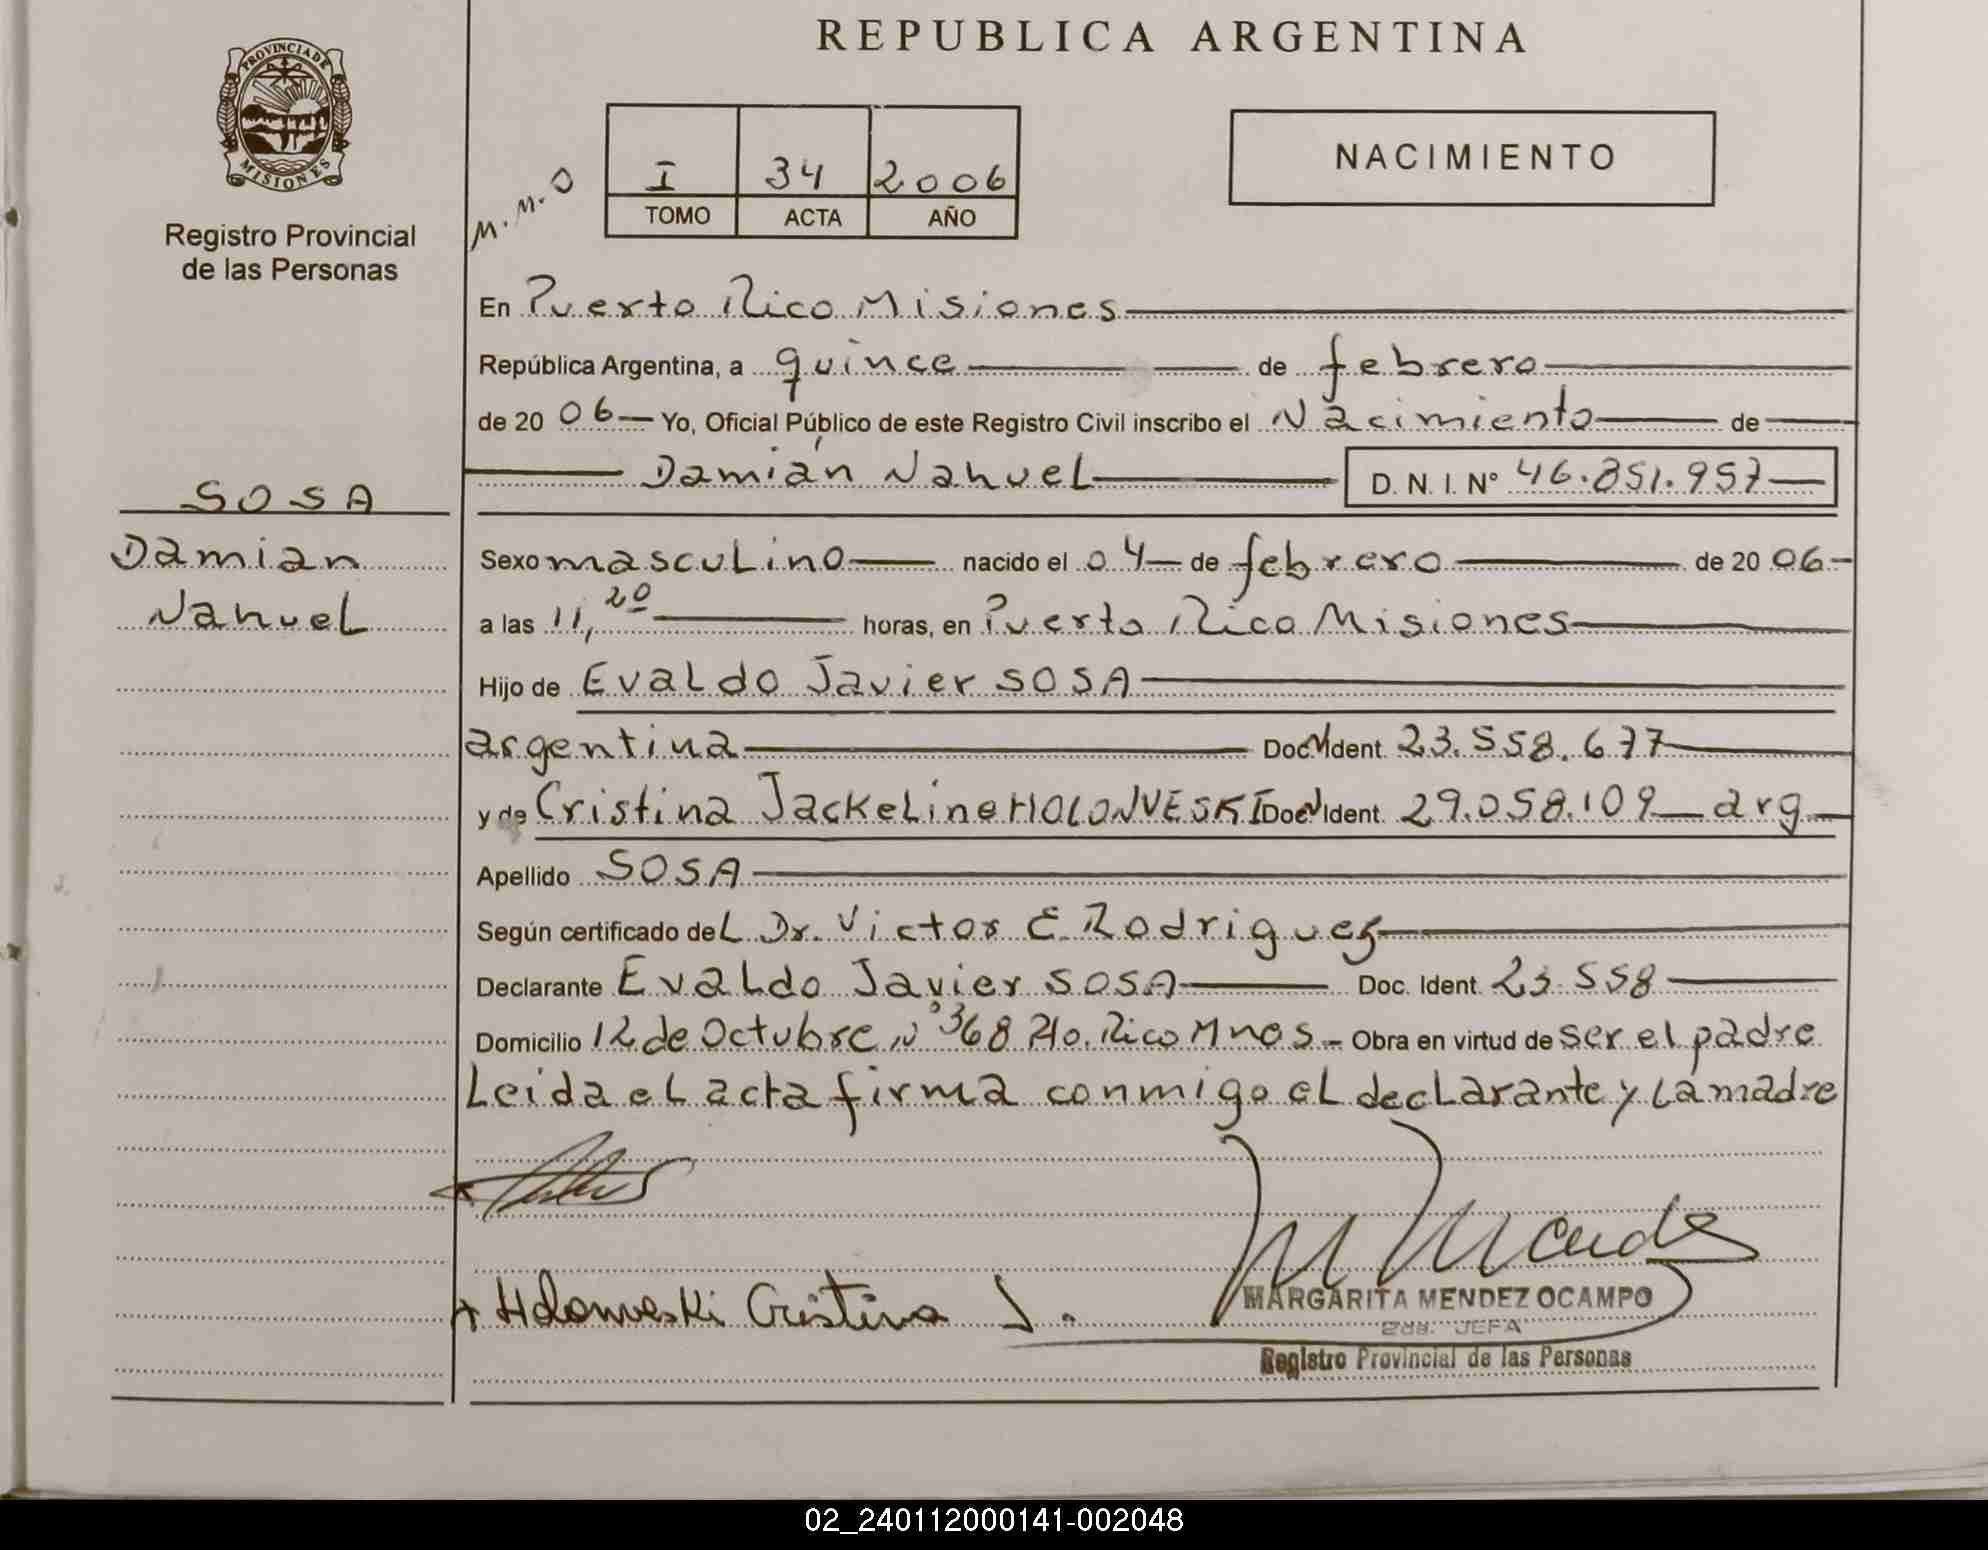 REPUBLICA ARGENTINA
PROVINCIA DE
MISIONES
Registro Provincial
de las Personas
M.M.O
I 34 2006
TOMO ACTA AÑO
NACIMIENTO
En Puerto Rico Misiones
República Argentina, a quince de febrero
de 20 06 Yo, Oficial Público de este Registro Civil inscribo el Nacimiento de
Damián Nahuel D. N. I. N° 46.851.957
SOSA
Damian
Nahuel
Sexo masculino nacido el 04 de febrero de 20 06
a las 11,20 horas, en Puerto Rico Misiones
Hijo de Evaldo Javier SOSA
argentina Doc. Ident. 23.558.677
y de Cristina Jackeline HOLONVESKI Doc. Ident. 29.058.109 arg
Apellido SOSA
Según certificado del Dr. Victor E. Rodriguez
Declarante Evaldo Javier SOSA Doc. Ident. 23.558
Domicilio 12 de Octubre N° 368 Pto. Rico Mnes Obra en virtud de ser el padre
Leida el acta firma conmigo el declarante y la madre
Holonveski Cristina J.
MARGARITA MENDEZ OCAMPO
JEFA
Registro Provincial de las Personas
02_240112000141-002048